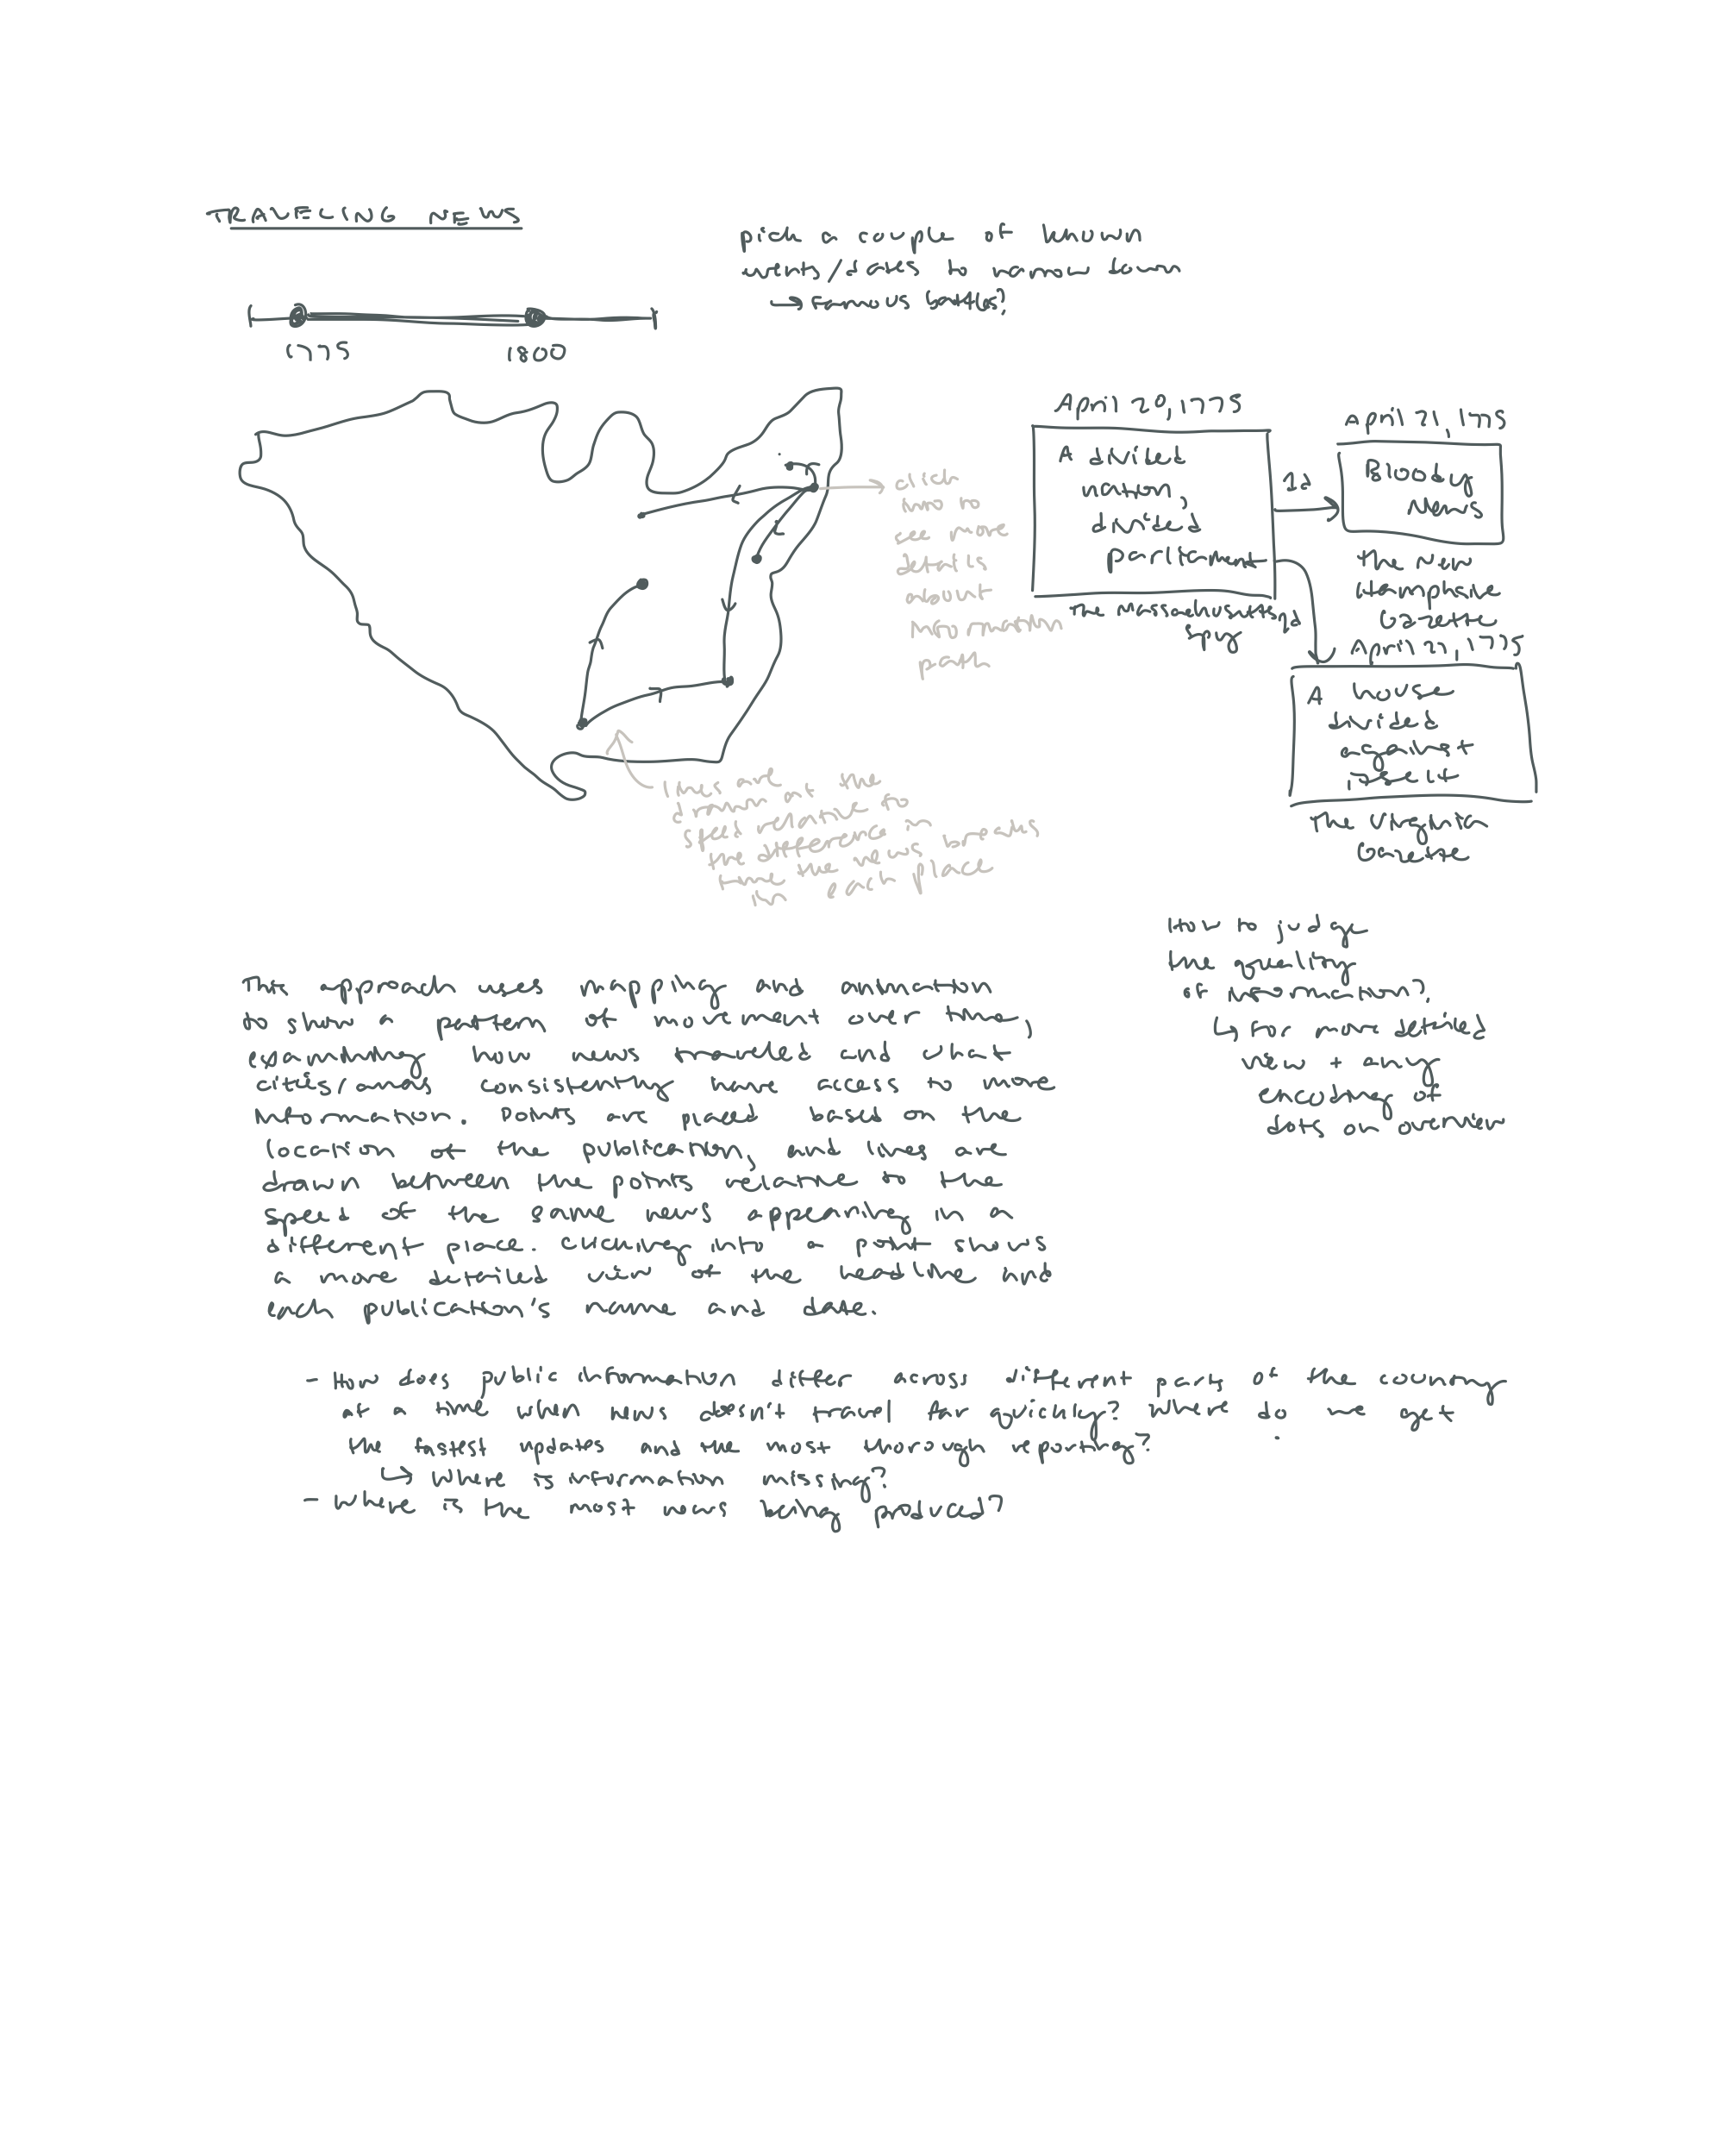 TRAVELING NEWS
pick a couple of known
events/dates to narrow down
↳ famous battles?
1775
1800
click
into to
see more
details
about
information
path
lines are
drawn at the
speed relative to
the difference in
time the news breaks
in each place
April 20, 1775
A divided
nation,
divided
parliament
The Massachusetts
Spy
1d
April 21, 1775
Bloody
News
The New
Hampshire
Gazette
2d
April 22, 1775
A house
divided
against
itself
The Virginia
Gazette
How to judge
the quality
of information?
↳ for more detailed
view + any
encoding of
dots on overview
This approach uses mapping and animation
to show a pattern of movement over time,
examining how news travelled and what
cities/areas consistently have access to more
information. Points are placed based on the
location of the publication, and lines are
drawn between the points relative to the
speed of the same news appearing in a
different place. Clicking into a point shows
a more detailed view of the headline and
each publication's name and date.
- How does public information differ across different parts of the country
at a time when news doesn't travel far quickly? Where do we get
the fastest updates and the most thorough reporting?
↳ Where is information missing?
- Where is the most news being produced?